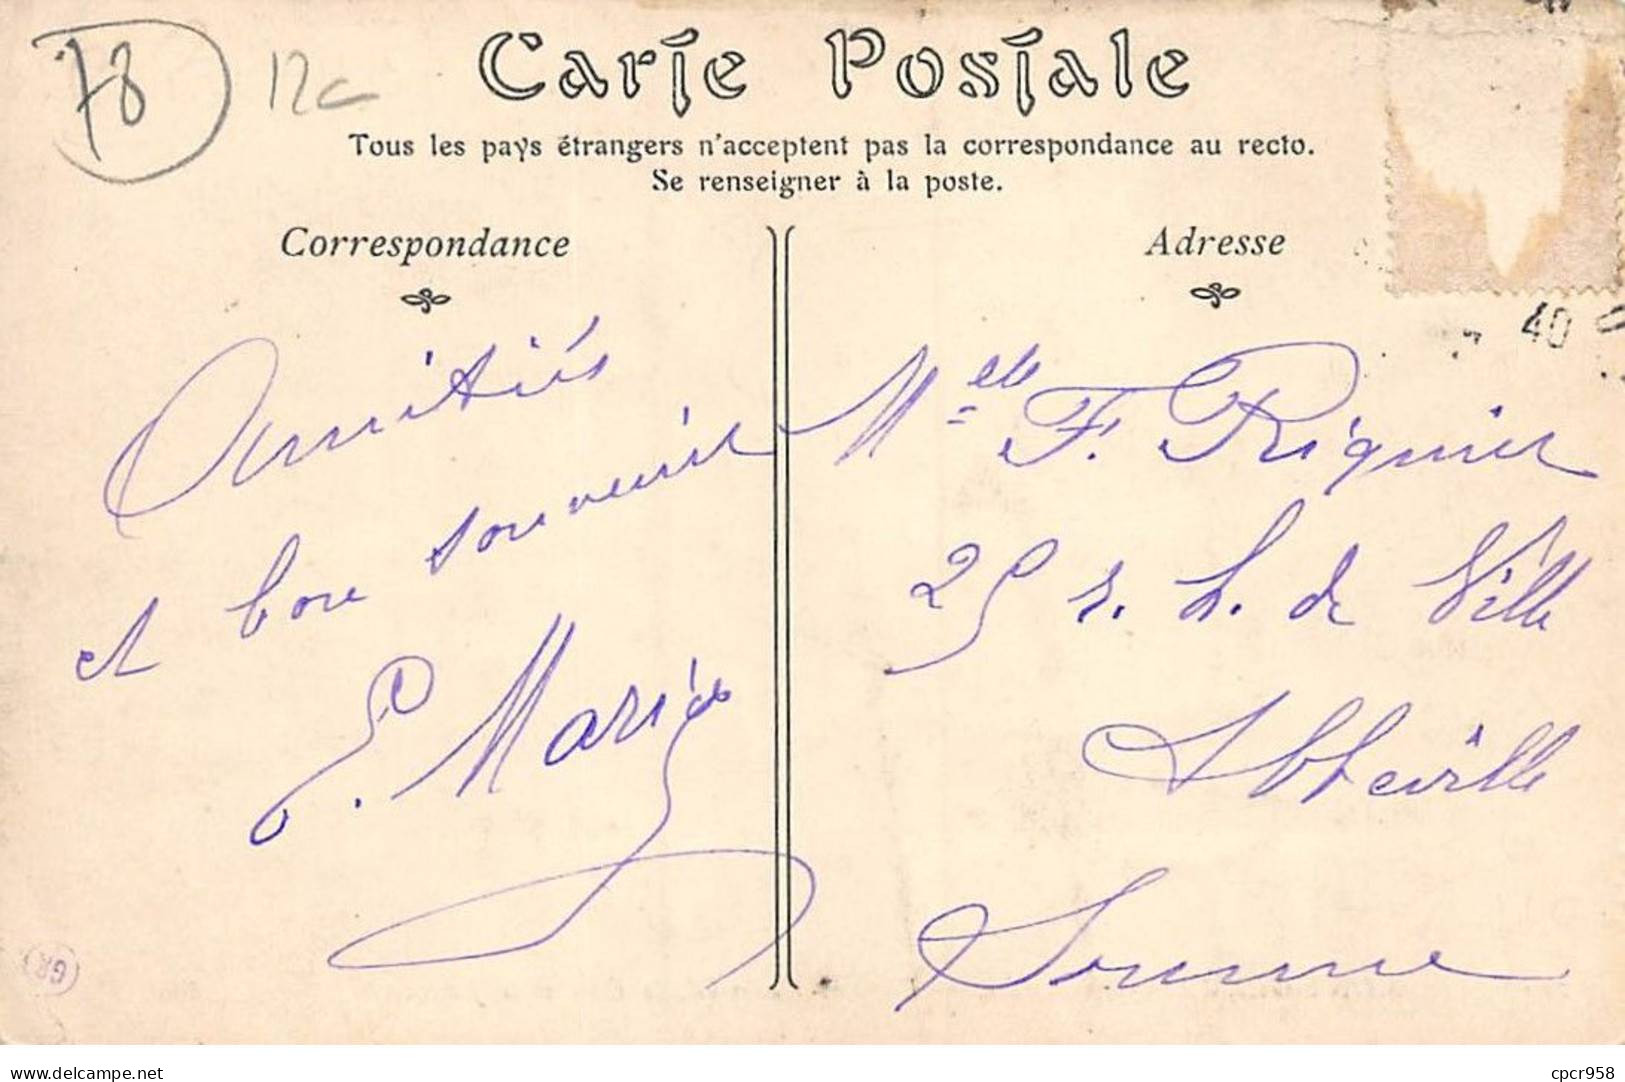 78 12c
Carte Postale
Tous les pays étrangers n'acceptent pas la correspondance au recto.
Se renseigner à la poste.
Correspondance
Amitiés
et bon souvenir
E. Mariés
Adresse
40
Melle F. Riquier
25 r. h. de Ville
Abbeville
Somme
GR
www.delcampe.net
cpcr958